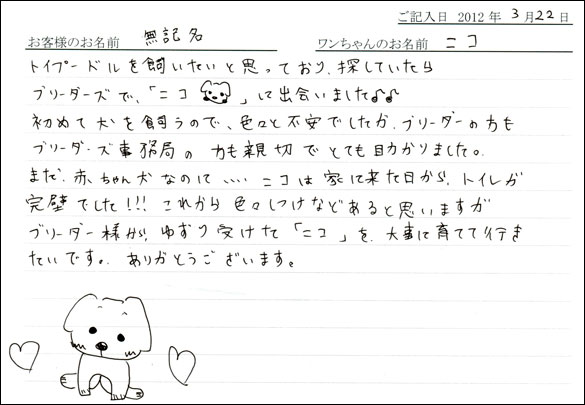 ご記入日 2012年 3月22日
お客様のお名前 無記名 ワンちゃんのお名前 ニコ
トイプードルを飼いたいと思っており、探していたら
ブリーダーズで、「ニコ 」に出会いました♪♪
初めて犬を飼うので、色々と不安でしたが、ブリーダーの方も
ブリーダーズ事務局の方も親切でとても助かりました。
まだ、赤ちゃん犬なのに…… ニコは家に来た日から、トイレが
完璧でした!!! これから色々しつけなどあると思いますが
ブリーダー様から、ゆずり受けた「ニコ」を、大事に育てて行き
たいです。ありがとうございます。